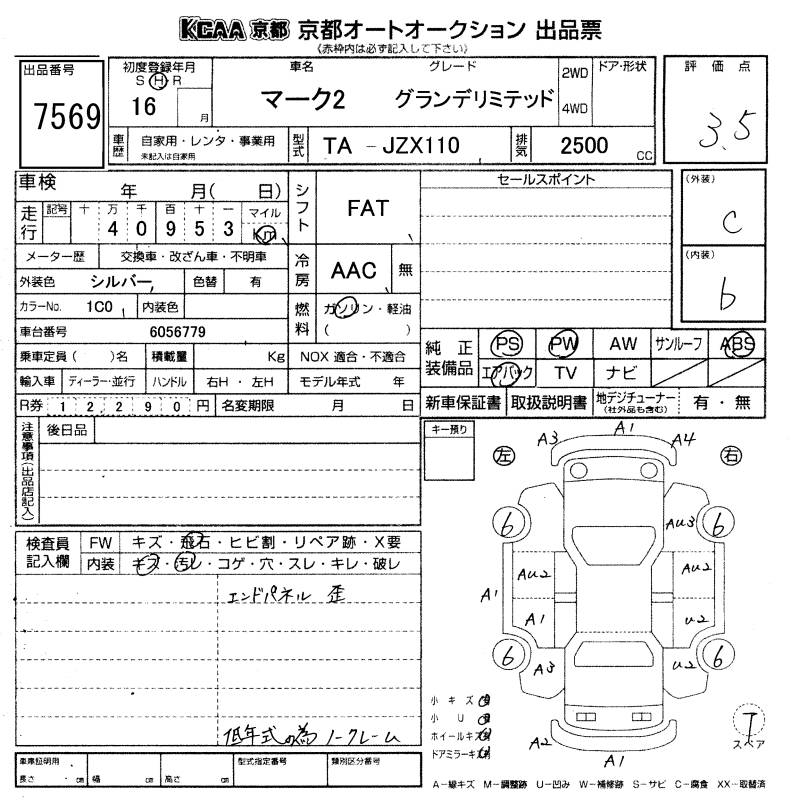 KCAA 京都 京都オートオークション 出品票
(赤枠内は必ず記入して下さい)
出品番号
7569
初度登録年月
S H R
16 月
車名
マーク2
グレード
グランデリミテッド
2WD
4WD
ドア・形状
評価点
3.5
車歴
自家用・レンタ・事業用
未記入は自家用
型式
TA - JZX110
排気
2500 CC
車検 年 月( 日)
走行
記号 十 万 千 百 十 一 マイル
4 0 9 5 3 Km
メーター歴 交換車・改ざん車・不明車
外装色 シルバー 色替 有
カラーNo. 1C0 内装色
車台番号 6056779
乗車定員( )名 積載量 Kg
輸入車 ディーラー・並行 ハンドル 右H・左H
R券 1 2 2 9 0 円 名変期限 月 日
シフト
FAT
冷房
AAC 無
燃料
ガソリン・軽油
( )
NOX 適合・不適合
モデル年式 年
セールスポイント
(外装)
C
(内装)
b
純正装備品
PS PW AW サンルーフ ABS
エアバック TV ナビ
新車保証書 取扱説明書 地デジチューナー(社外品も含む) 有・無
注意事項(出品店記入)
後日品
キー預り
検査員記入欄
FW キズ・飛石・ヒビ割・リペア跡・X要
内装 キズ・汚レ・コゲ・穴・スレ・キレ・破レ
エンドパネル 歪
低年式の為 ノークレーム
左
右
A3 A1 A4
6 6
AU3
AU2 AU2
A1 A1 U2
6 6
A3 U2
A2 A1
小キズ 有
小U 有
ホイールキズ
ドアミラーキズ
T
スペア
車庫証明用
長さ ・ cm 幅 cm 高さ cm
型式指定番号
類別区分番号
A−線キズ M−調整跡 U−凹み W−補修跡 S−サビ C−腐食 XX−取替済